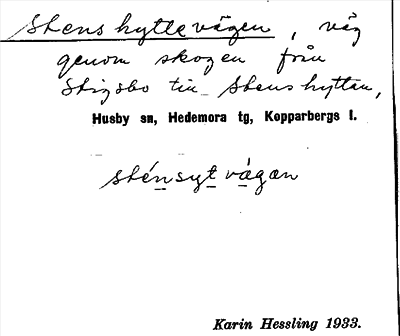 Stenshyttevägen, väg
genom skogen från
Stigsbo till Stenshyttan,
Husby sn, Hedemora tg, Kopparbergs l.
sténsyt vägæn
Karin Hessling 1933.